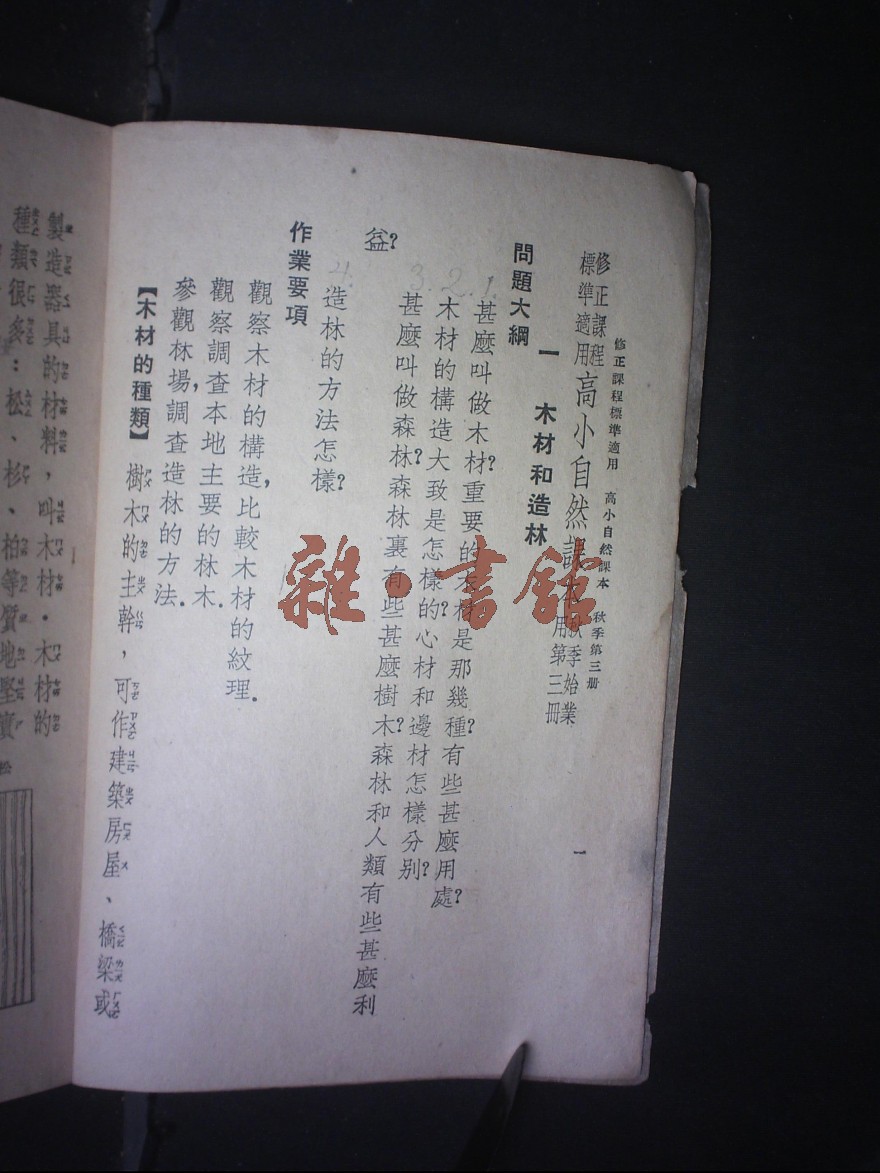 修正課程標準適用 高小自然課本 秋季第三册
一
修正課程
標準適用
高小自然課本
秋季始業
用第三册
一 木材和造林
問題大綱
1. 甚麼叫做木材?重要的木材是那幾種?有些甚麼用處?
2. 木材的構造大致是怎樣的?心材和邊材怎樣分别?
3. 甚麼叫做森林?森林裏有些甚麼樹木?森林和人類有些甚麼利
益?
4. 造林的方法怎樣?
作業要項
觀察木材的構造,比較木材的紋理.
觀察調查本地主要的林木.
參觀林場,調查造林的方法.
【木材的種類】 樹木的主幹,可作建築房屋、橋梁或
製造器具的材料,叫木材。木材的
種類很多:松、杉、柏等質地堅實
松
雜·書館